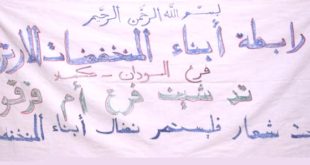 بسم الله الرحمن الرحيم
رابطة أبناء المنخفضات الارتر
فرع السودان - كسلا
تدشين فرع أم قرقور
حت شعار فليستمر نضال أبناء المنخفض